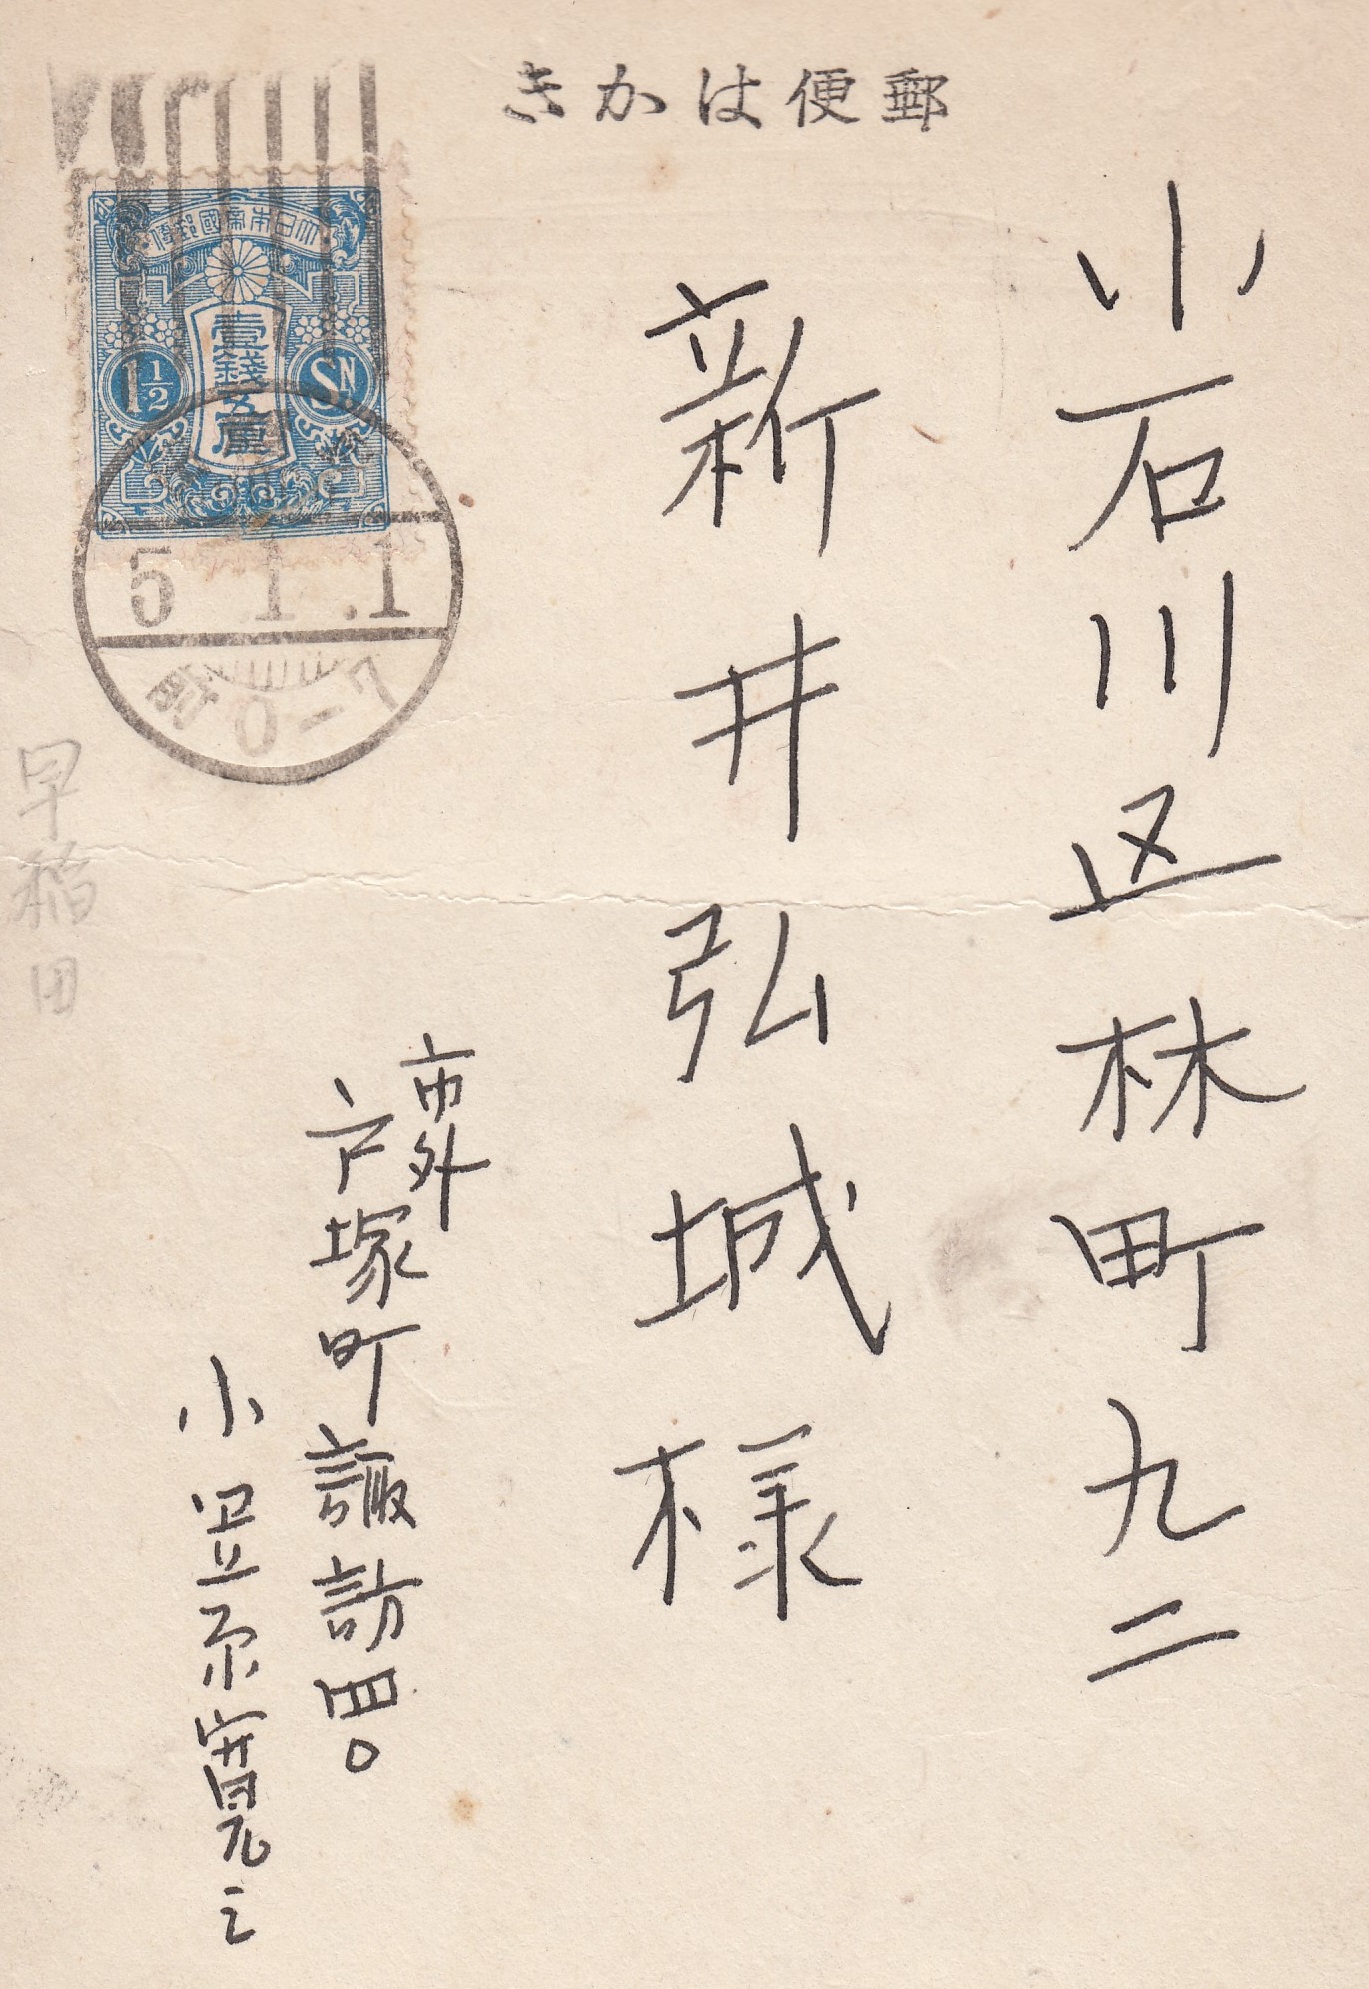 郵便はかき
小石川区林町九二
新井弘城様
市外
戸塚町諏訪四〇
小野寛之
大日本帝國郵便
壹錢五厘
1½
SN
5.1.1
0-7
早稲田